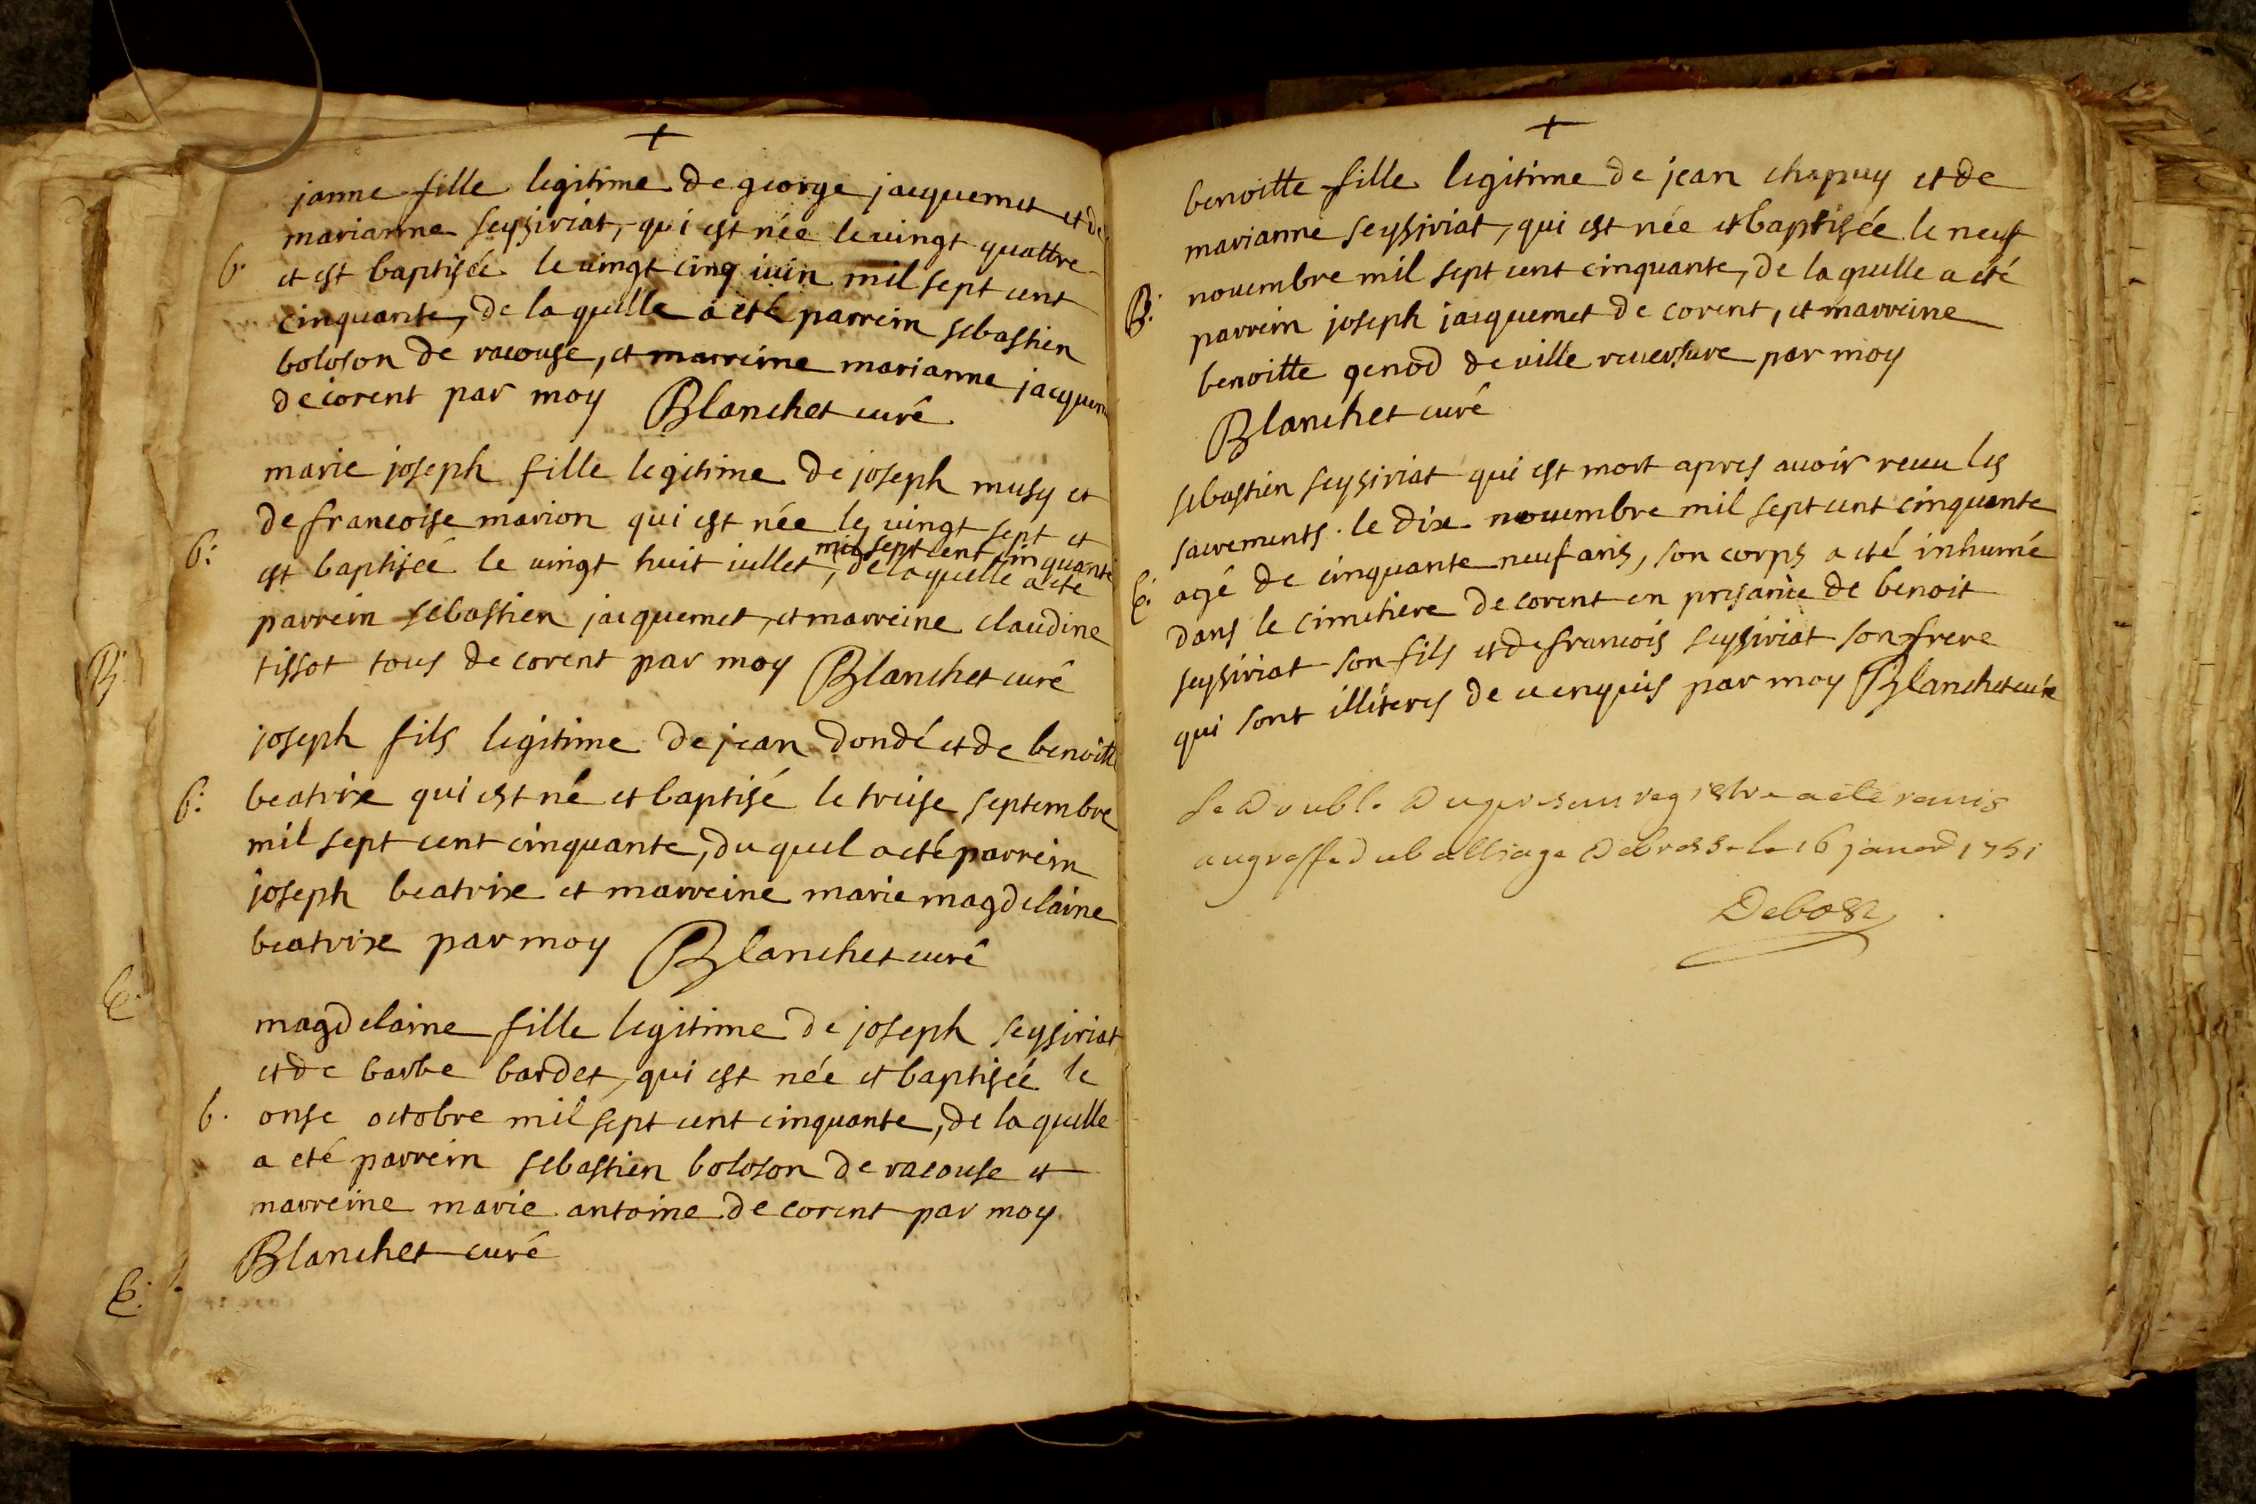 +
janne fille legitime de george jacquemet et de
marianne seysiriat, qui est née le vingt quattre
b. et est baptisée le vingt cinq iuin mil sept cent
cinquante, de la quelle a eté parrein sebastien
boloson de racouse, et marreine marianne jacquem
de corent par moy Blanchet curé
marie joseph fille legitime de joseph musy et
de francoise marion qui est née le vingt sept et
mil sept cent cinquante
b: est baptisée le vingt huit iullet, de la quelle a eté
parrein sebastien jacquemet, et marreine claudine
tissot tous de corent par moy Blanchet curé
joseph fils legitime de jean dondé et de benoitte
b: beatrix qui est né et baptisé le treise septembre
mil sept cent cinquante, du quel a eté parrein
joseph beatrix et marreine marie magdelaine
beatrix par moy Blanchet curé
magdelaine fille legitime de joseph seysiriat
et de barbe bardet, qui est née et baptisée le
b. onse octobre mil sept cent cinquante, de la quelle
a eté parrein sebastien boloson de racouse et
marreine marie antoine de corent par moy
Blanchet curé
+
benoitte fille legitime de jean chapuy et de
marianne seysiriat, qui est née et baptisée le neuf
B: novembre mil sept cent cinquante, de la quelle a eté
parrein joseph jacquemet de corent, et marreine
benoitte genod de ville reversure par moy
Blanchet curé
sebastien seysiriat qui est mort apres avoir receu les
sacrements le dix novembre mil sept cent cinquante
E. agé de cinquante neuf ans, son corps a eté inhumé
dans le cimetiere de corent en presance de benoit
seysiriat son fils et de francois seysiriat son frere
qui sont illiteres de ce enquis par moy Blanchet curé
Le double du present registre a eté remis
au greffe du balliage de bresse le 16 janvier 1751
B:
E.
E: